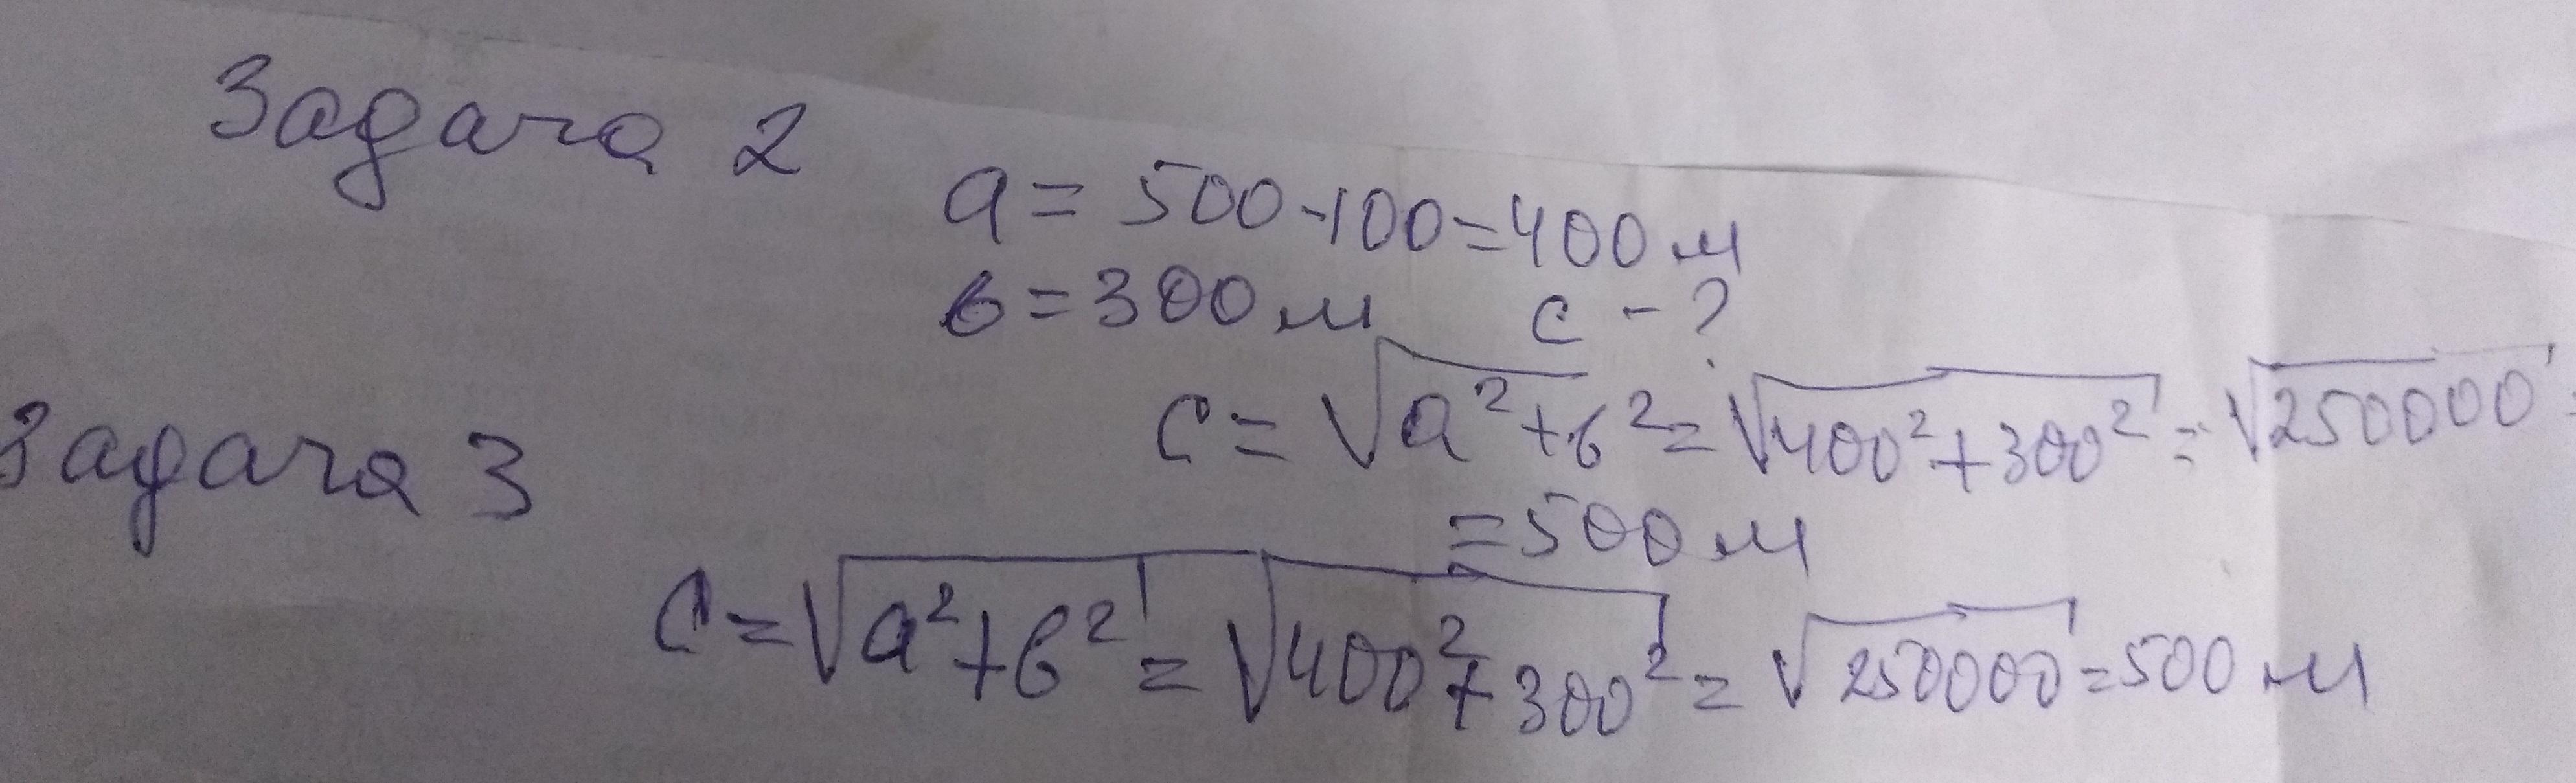 Задача 2
a = 500-100=400 м
в = 300 м c - ?
c = √a²+в² = √400²+300² = √250000 =
= 500 м
Задача 3
c = √a²+в² = √400²+300² = √250000 = 500 м